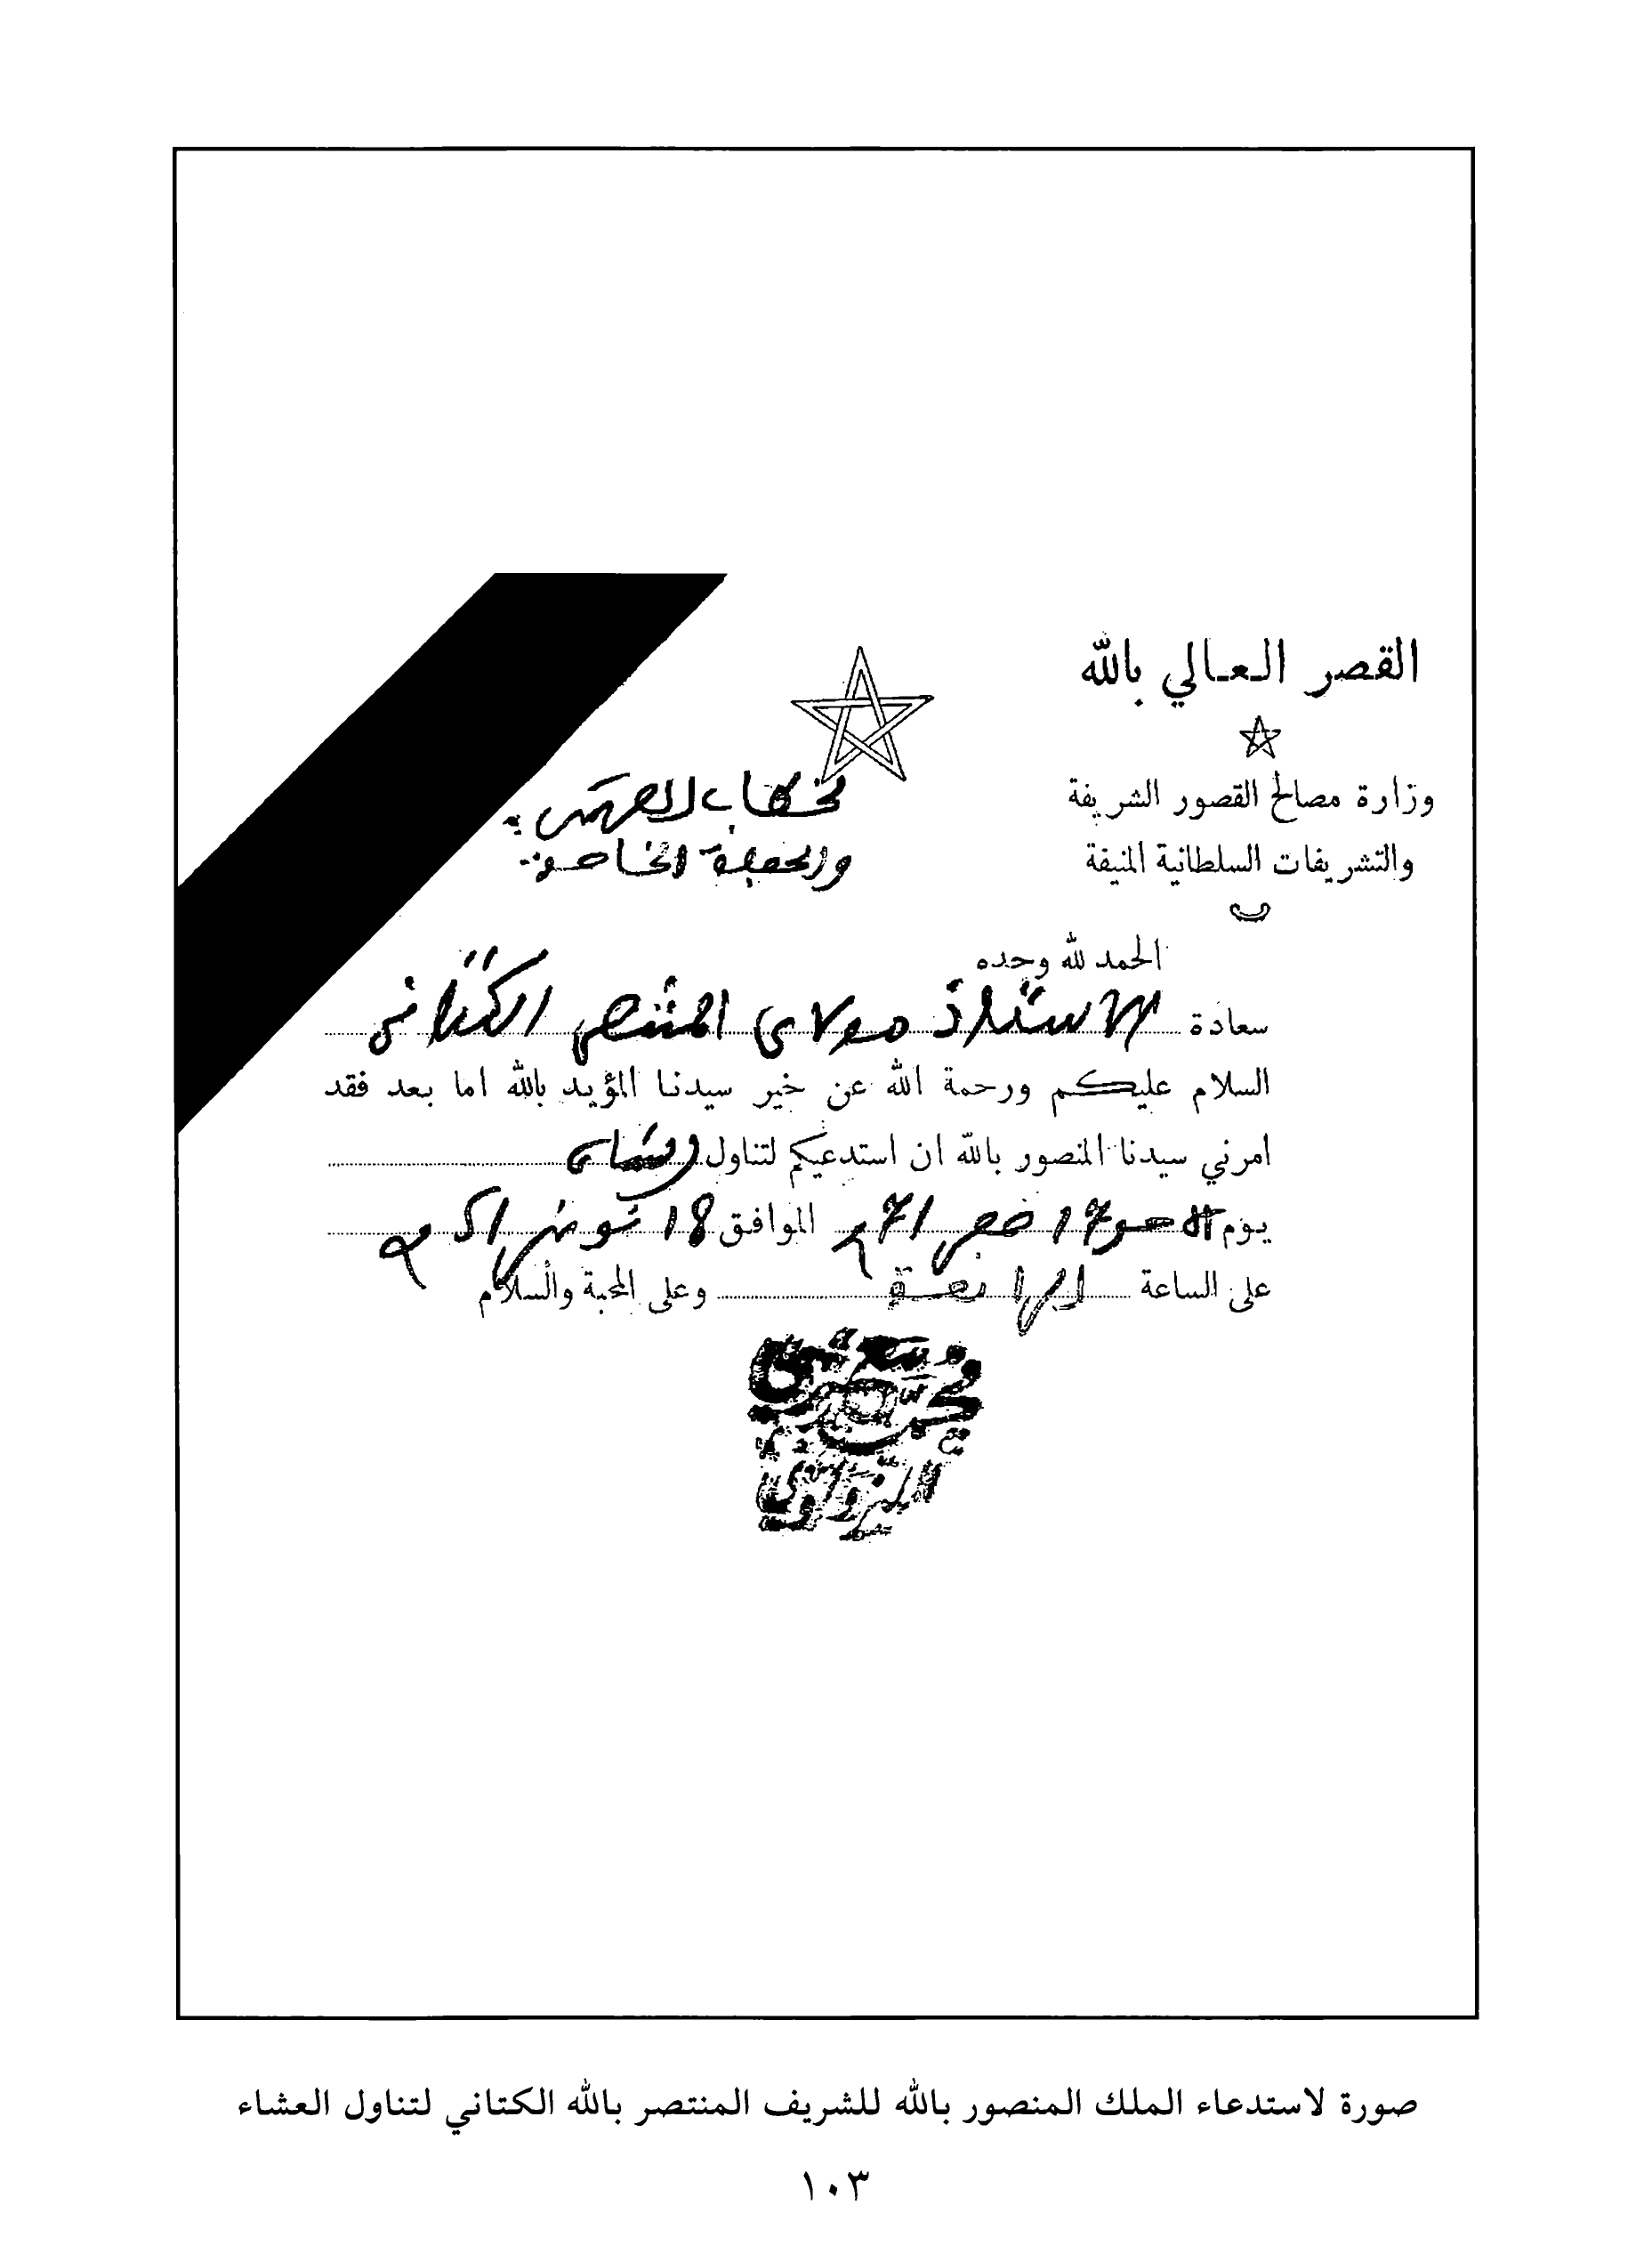 القصر العالي بالله
وزارة مصالح القصور الشريفة
والتشريفات السلطانية المنيفة
والحفلة الخاصة
الحمد لله وحده
سعادة الاستاذ مولاي المنتصر الكتاني
السلام عليكم ورحمة الله عن خير سيدنا المؤيد بالله اما بعد فقد
امرني سيدنا المنصور بالله ان استدعيكم لتناول
يوم 17 صفر الموافق 18 نونبر
على الساعة وعلى المحبة والسلام
صورة لاستدعاء الملك المنصور بالله للشريف المنتصر بالله الكتاني لتناول العشاء
١٠٣